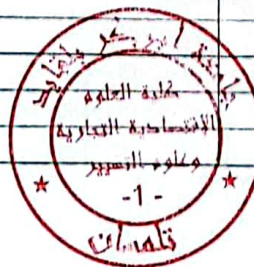 جامعة أبو بكر بلقايد
كلية العلوم
الاقتصادية التجارية
وعلوم التسيير
-1-
تلمسان